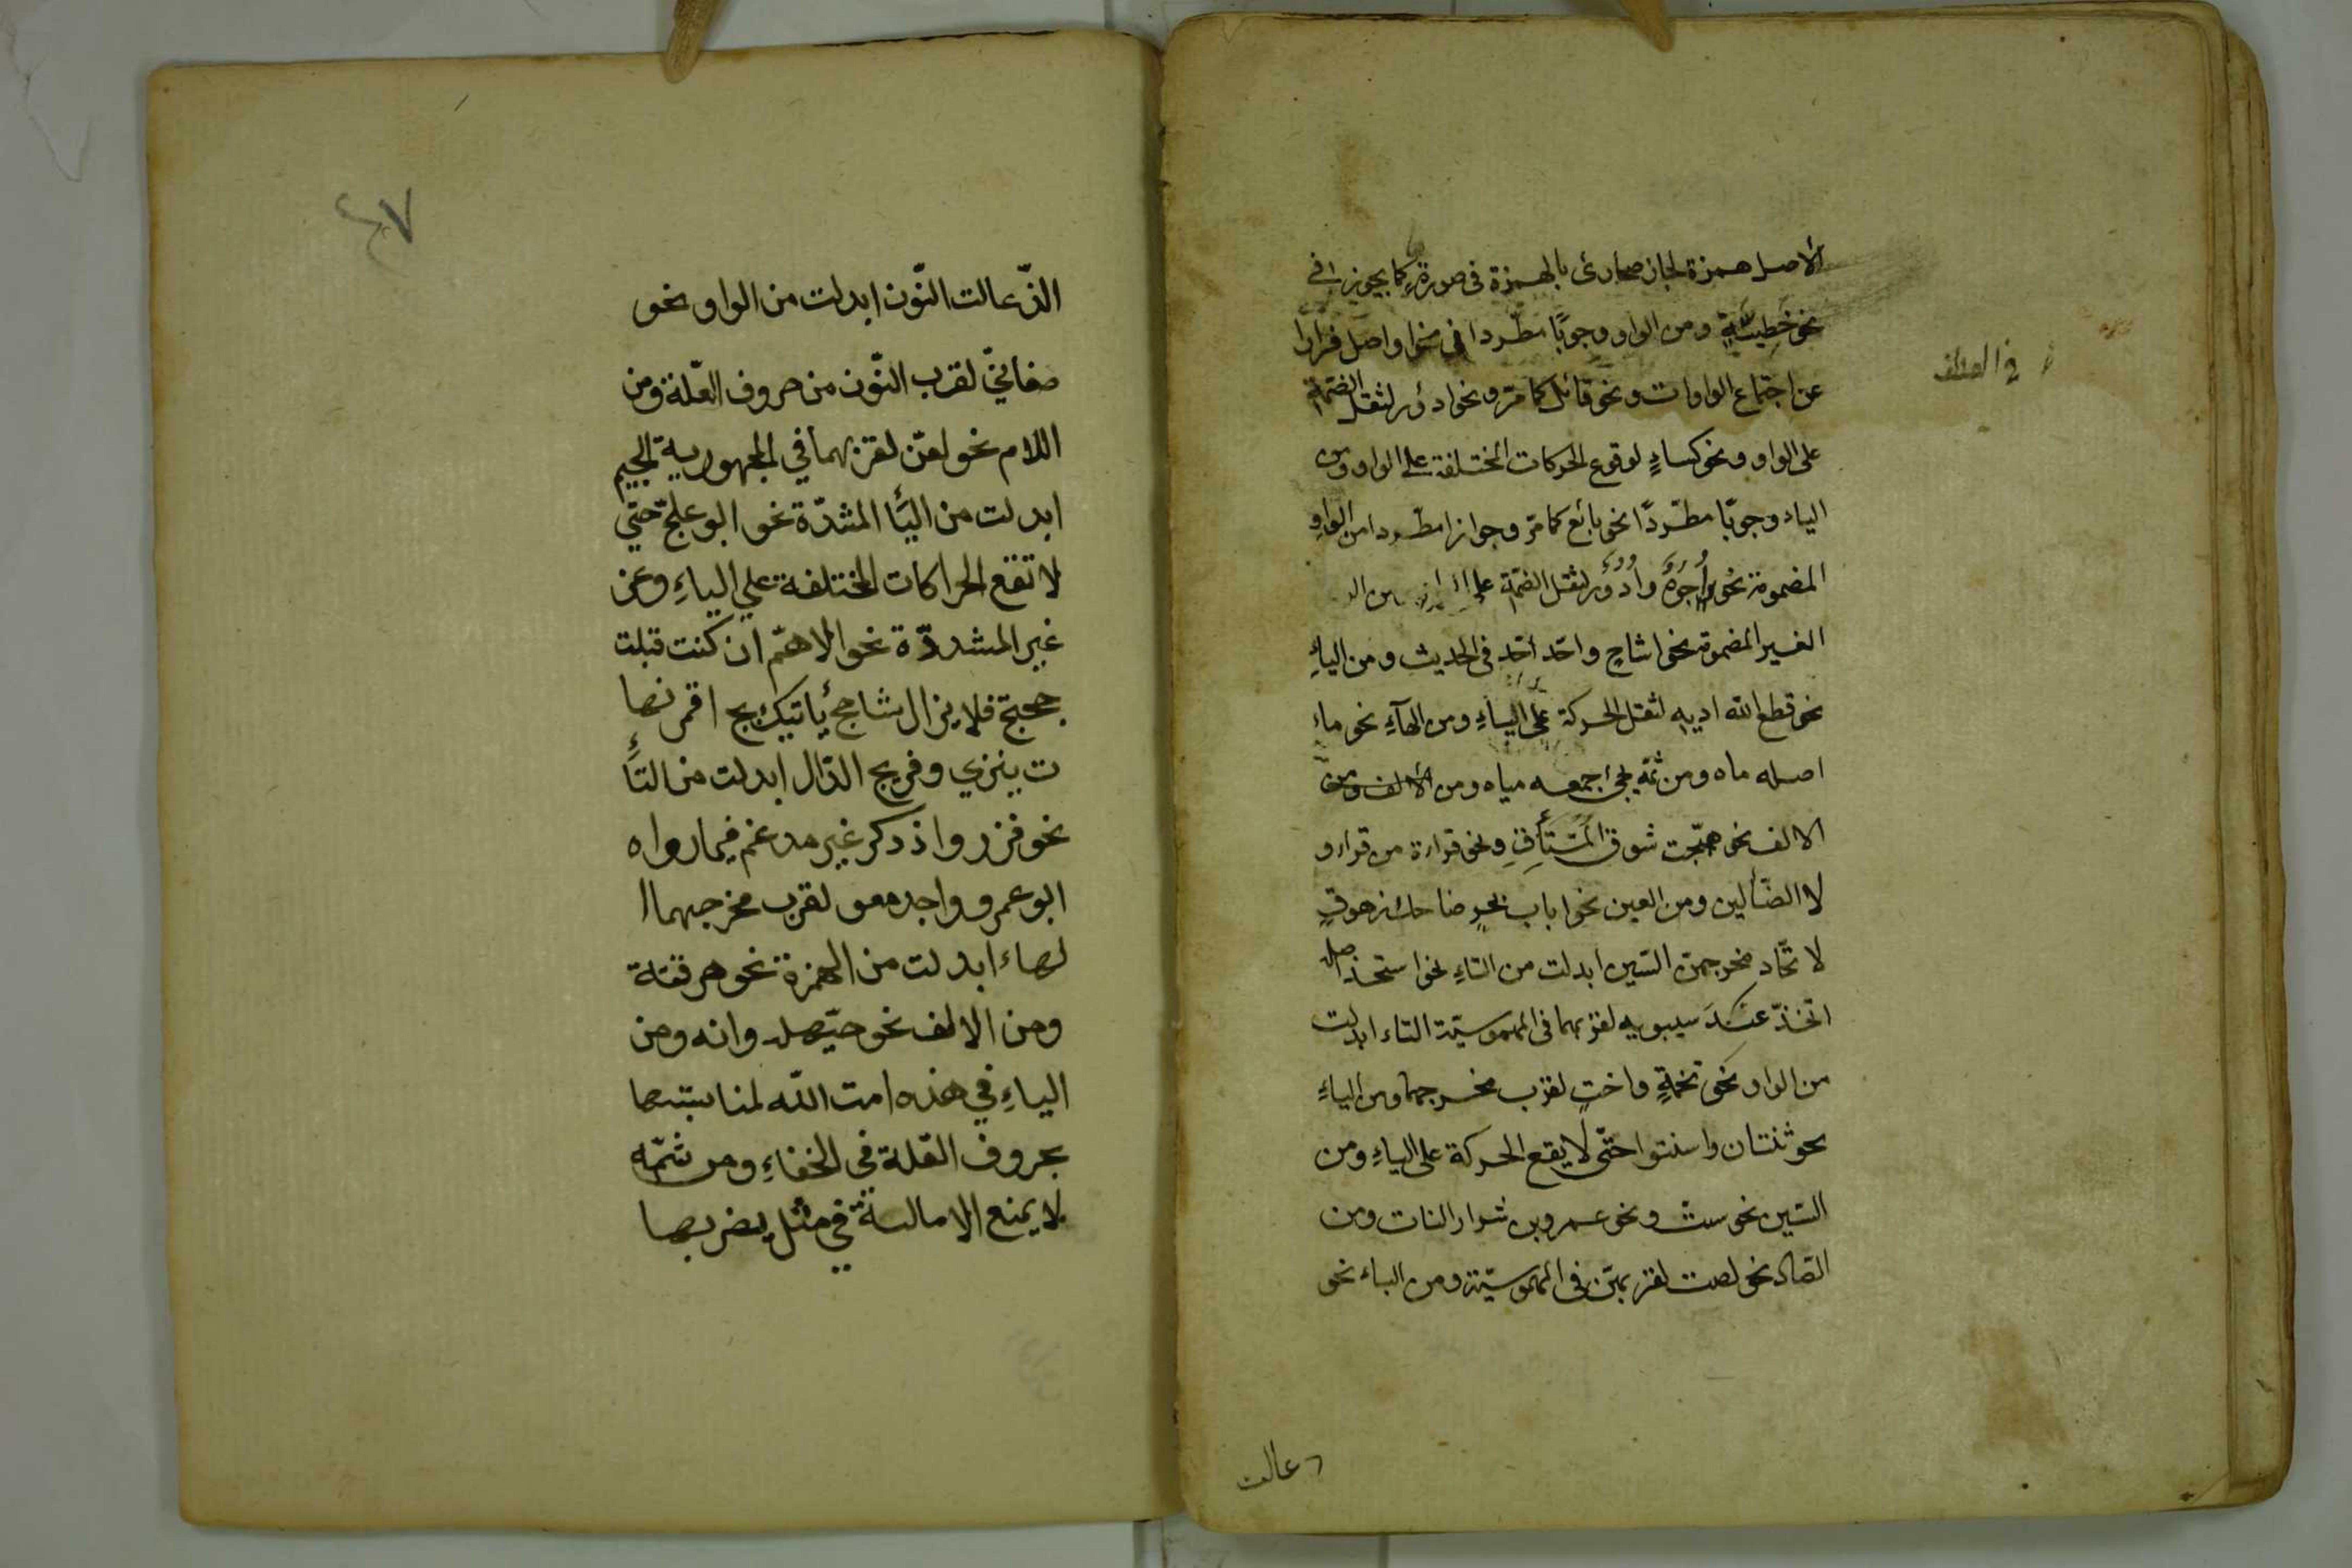 الاصل همزة لجاز صحارئ بالهمزة في صورة كما يجوز في
نحو خطيئة ومن الواو وجوبًا مطّردا في نحو اواصل فرارا
عن اجتماع الواوات ونحو قائل كما مرّ ونحو ادؤر لثقل الضمة
على الواو ونحو كساءٍ لوقوع الحركات المختلفة على الواو ومن
الياء وجوبًا مطّردًا نحو بائع كما مرّ وجوازا مطّردا من الواوِ
المضمومة نحو اُجُوهٌ وادؤر لثقل الضمّة على
الغير المضمومة نحو اشاحٍ واحد احد في الحديث ومن الياءِ
نحو قطع الله اديه لثقل الحركة على الياءِ ومن الهآءِ نحو ماء
اصله ماه ومن ثمّه يجئ جمعه مياه ومن
الالف نحو هيّجت شوق المشتأقِ ونحو قراءة من قراء و
لا الضألين ومن العين نحو اباب بحرٍ ضاحك زهوقٍ
لاتّحاد مخرجهنّ السّين ابدلت من التاءِ نحو استخذ اصله
اتخذّ عند سيبويه لقربهما في المهموسيّة التاء ابدلت
من الواو نحو تخمةٍ واختٍ لقرب مخرجهما ومن الياءِ
نحو ثنتان واسنتوا حتّى لا يقع الحركة على الياءِ ومن
السّين نحو ستّ ونحو عمرو بن شرار النات ومن
الصّاد نحو لصت لقربهنّ في المهموسيّة ومن الباء نحو
في العطف
دعالت
٤٧
الذّعالت النّون ابدلت من الواو نحو
صنعانيّ لقرب النّون من حروف العّلة ومن
اللام نحو لعنّ لقربهما في المجهورية الجيم
ابدلت من اليأ المشدّة نحو ابو علجّ حتّي
لا تقع الحراكات المختلفة علي الياءِ وعن
غير المشددّة نحو الاهمّ ان كنت قبلت
حجتج فلا يزال شاحج ياتيك بج اقمرنها
ت ينزي وفريج الدّال ابدلت من التأ
نحو فزد واذدكر غير مدغم فيما رواه
ابو عمرو واجدمعو لقرب مخرجهما ا
لهاء ابدلت من الهمزة نحو هرقتة
ومن الالف نحو حيّهله وانه ومن
الياءِ في هذه امت الله لمناسبتها
بحروف العّلة في الخفاءِ ومن ثمّه
لا يمنع الامالة في مثل يضربها